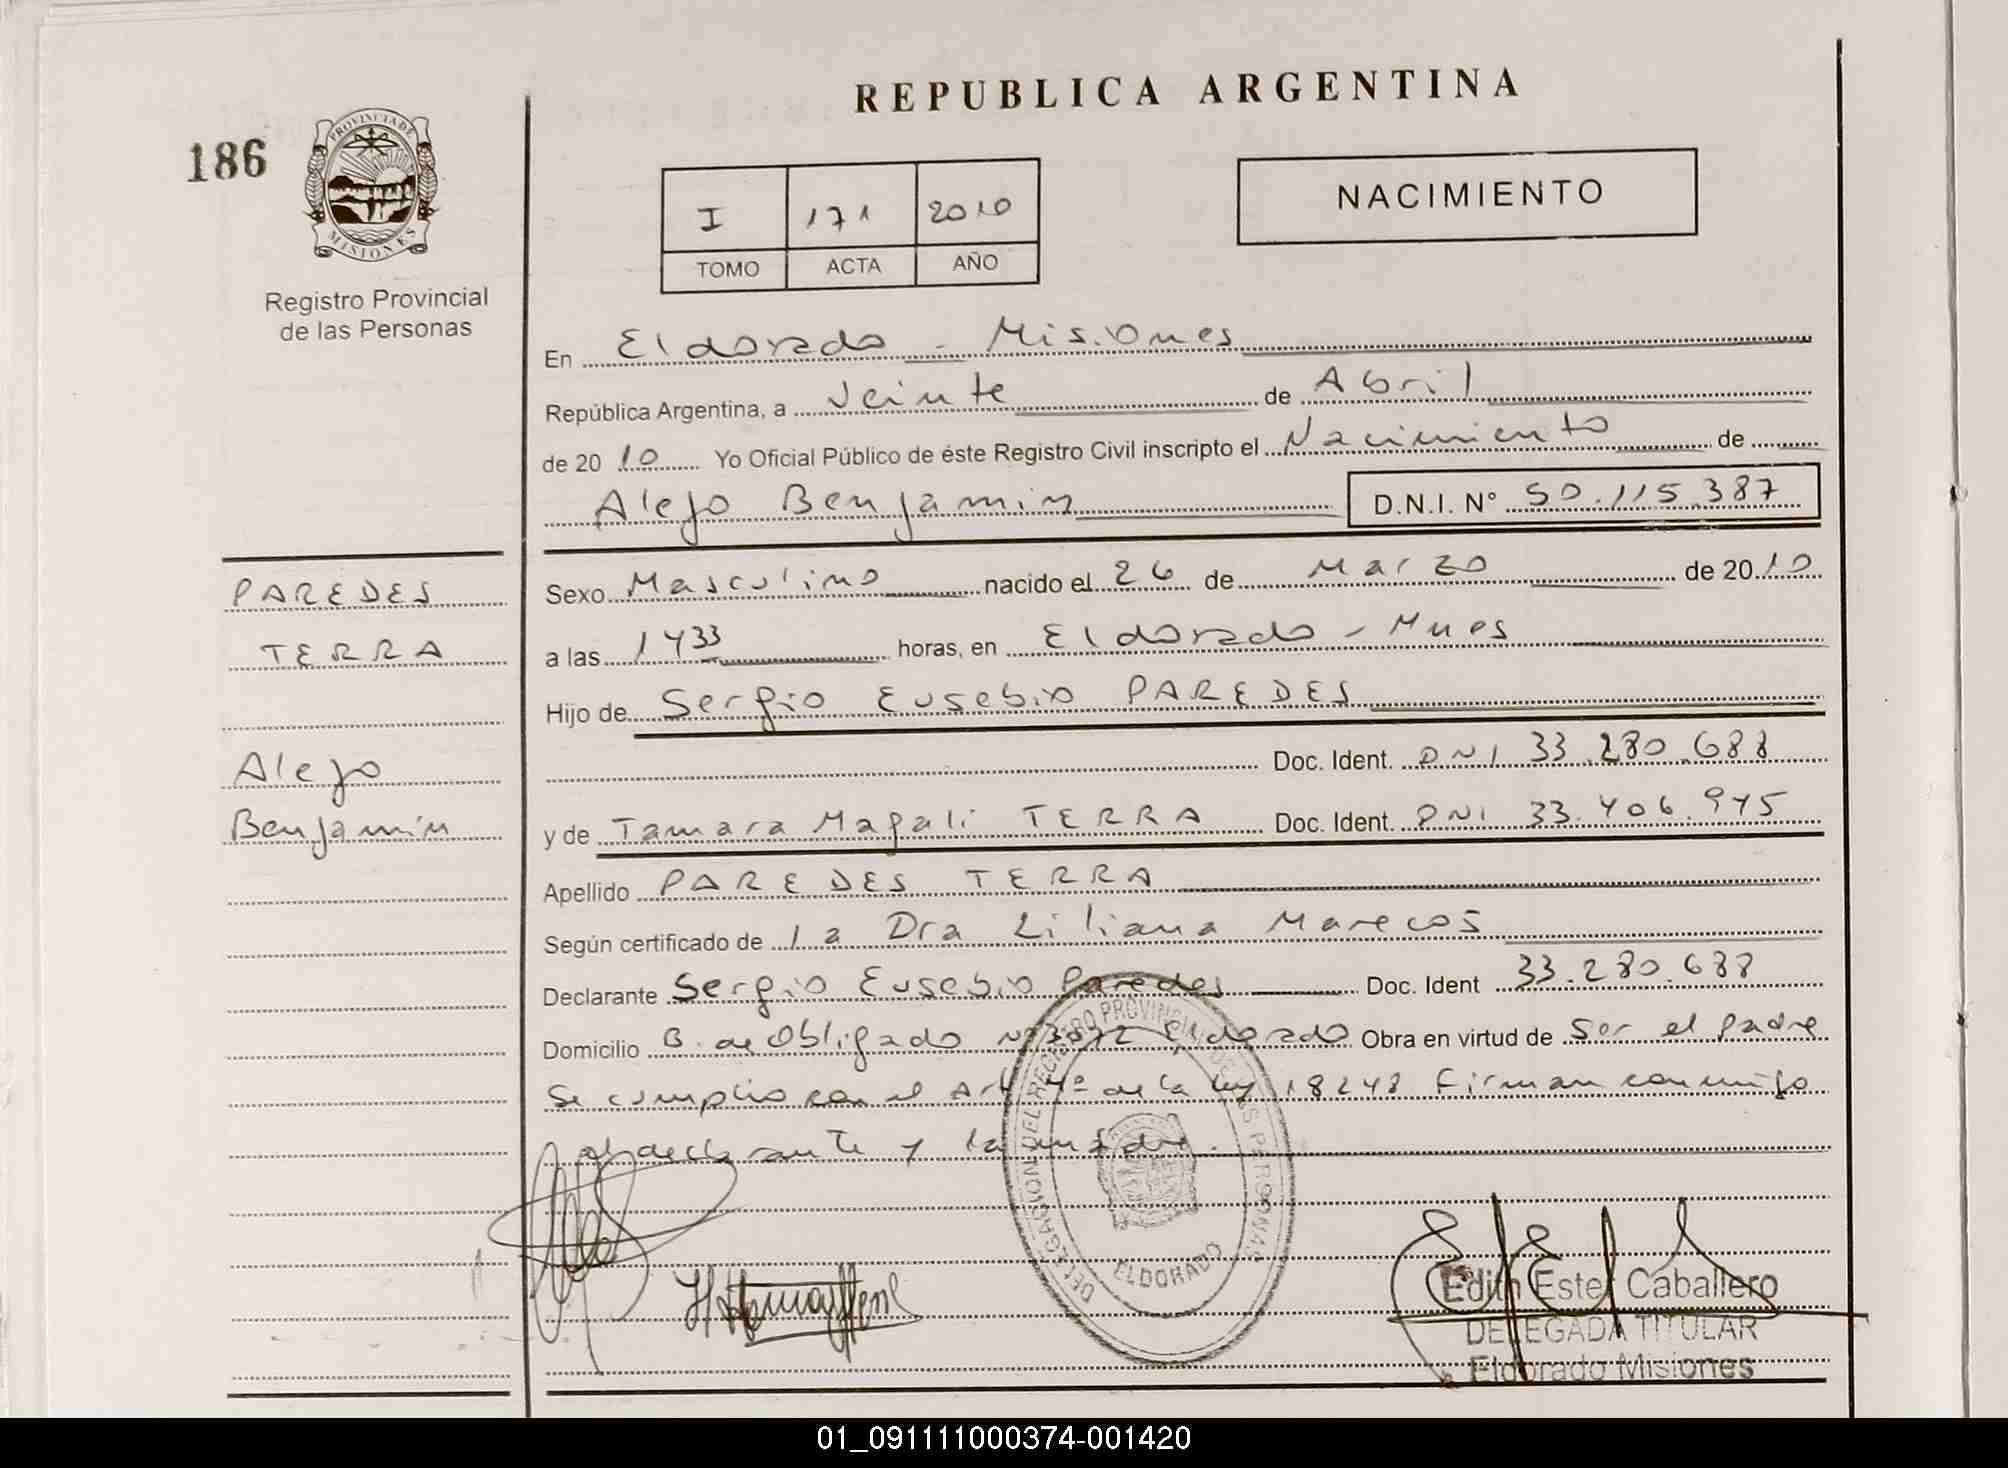 REPUBLICA ARGENTINA
186
PROVINCIA DE
MISIONES
Registro Provincial
de las Personas
I 171 2010
TOMO ACTA AÑO
NACIMIENTO
En Eldorado - Misiones
República Argentina, a Veinte de Abril
de 2010 Yo Oficial Público de éste Registro Civil inscripto el Nacimiento de
Alejo Benjamin D.N.I. N° 50.115.387
PAREDES
TERRA
Alejo
Benjamin
Sexo Masculino nacido el 26 de Marzo de 2010
a las 1433 horas, en Eldorado - Mnes
Hijo de Sergio Eusebio PAREDES
Doc. Ident. DNI 33.280.688
y de Tamara Magali TERRA Doc. Ident. DNI 33.406.945
Apellido PAREDES TERRA
Según certificado de la Dra Liliana Marecos
Declarante Sergio Eusebio Paredes Doc. Ident 33.280.688
Domicilio B. de Obligado Nº Eldorado Obra en virtud de Ser el padre
Se cumplio con el Art 4º de la ley 18248 Firman conmigo
el declarante y la madre.
DELEGACION DEL REGISTRO PROVINCIAL DE LAS PERSONAS
ELDORADO
Edith Ester Caballero
DELEGADA TITULAR
Eldorado Misiones
01_091111000374-001420